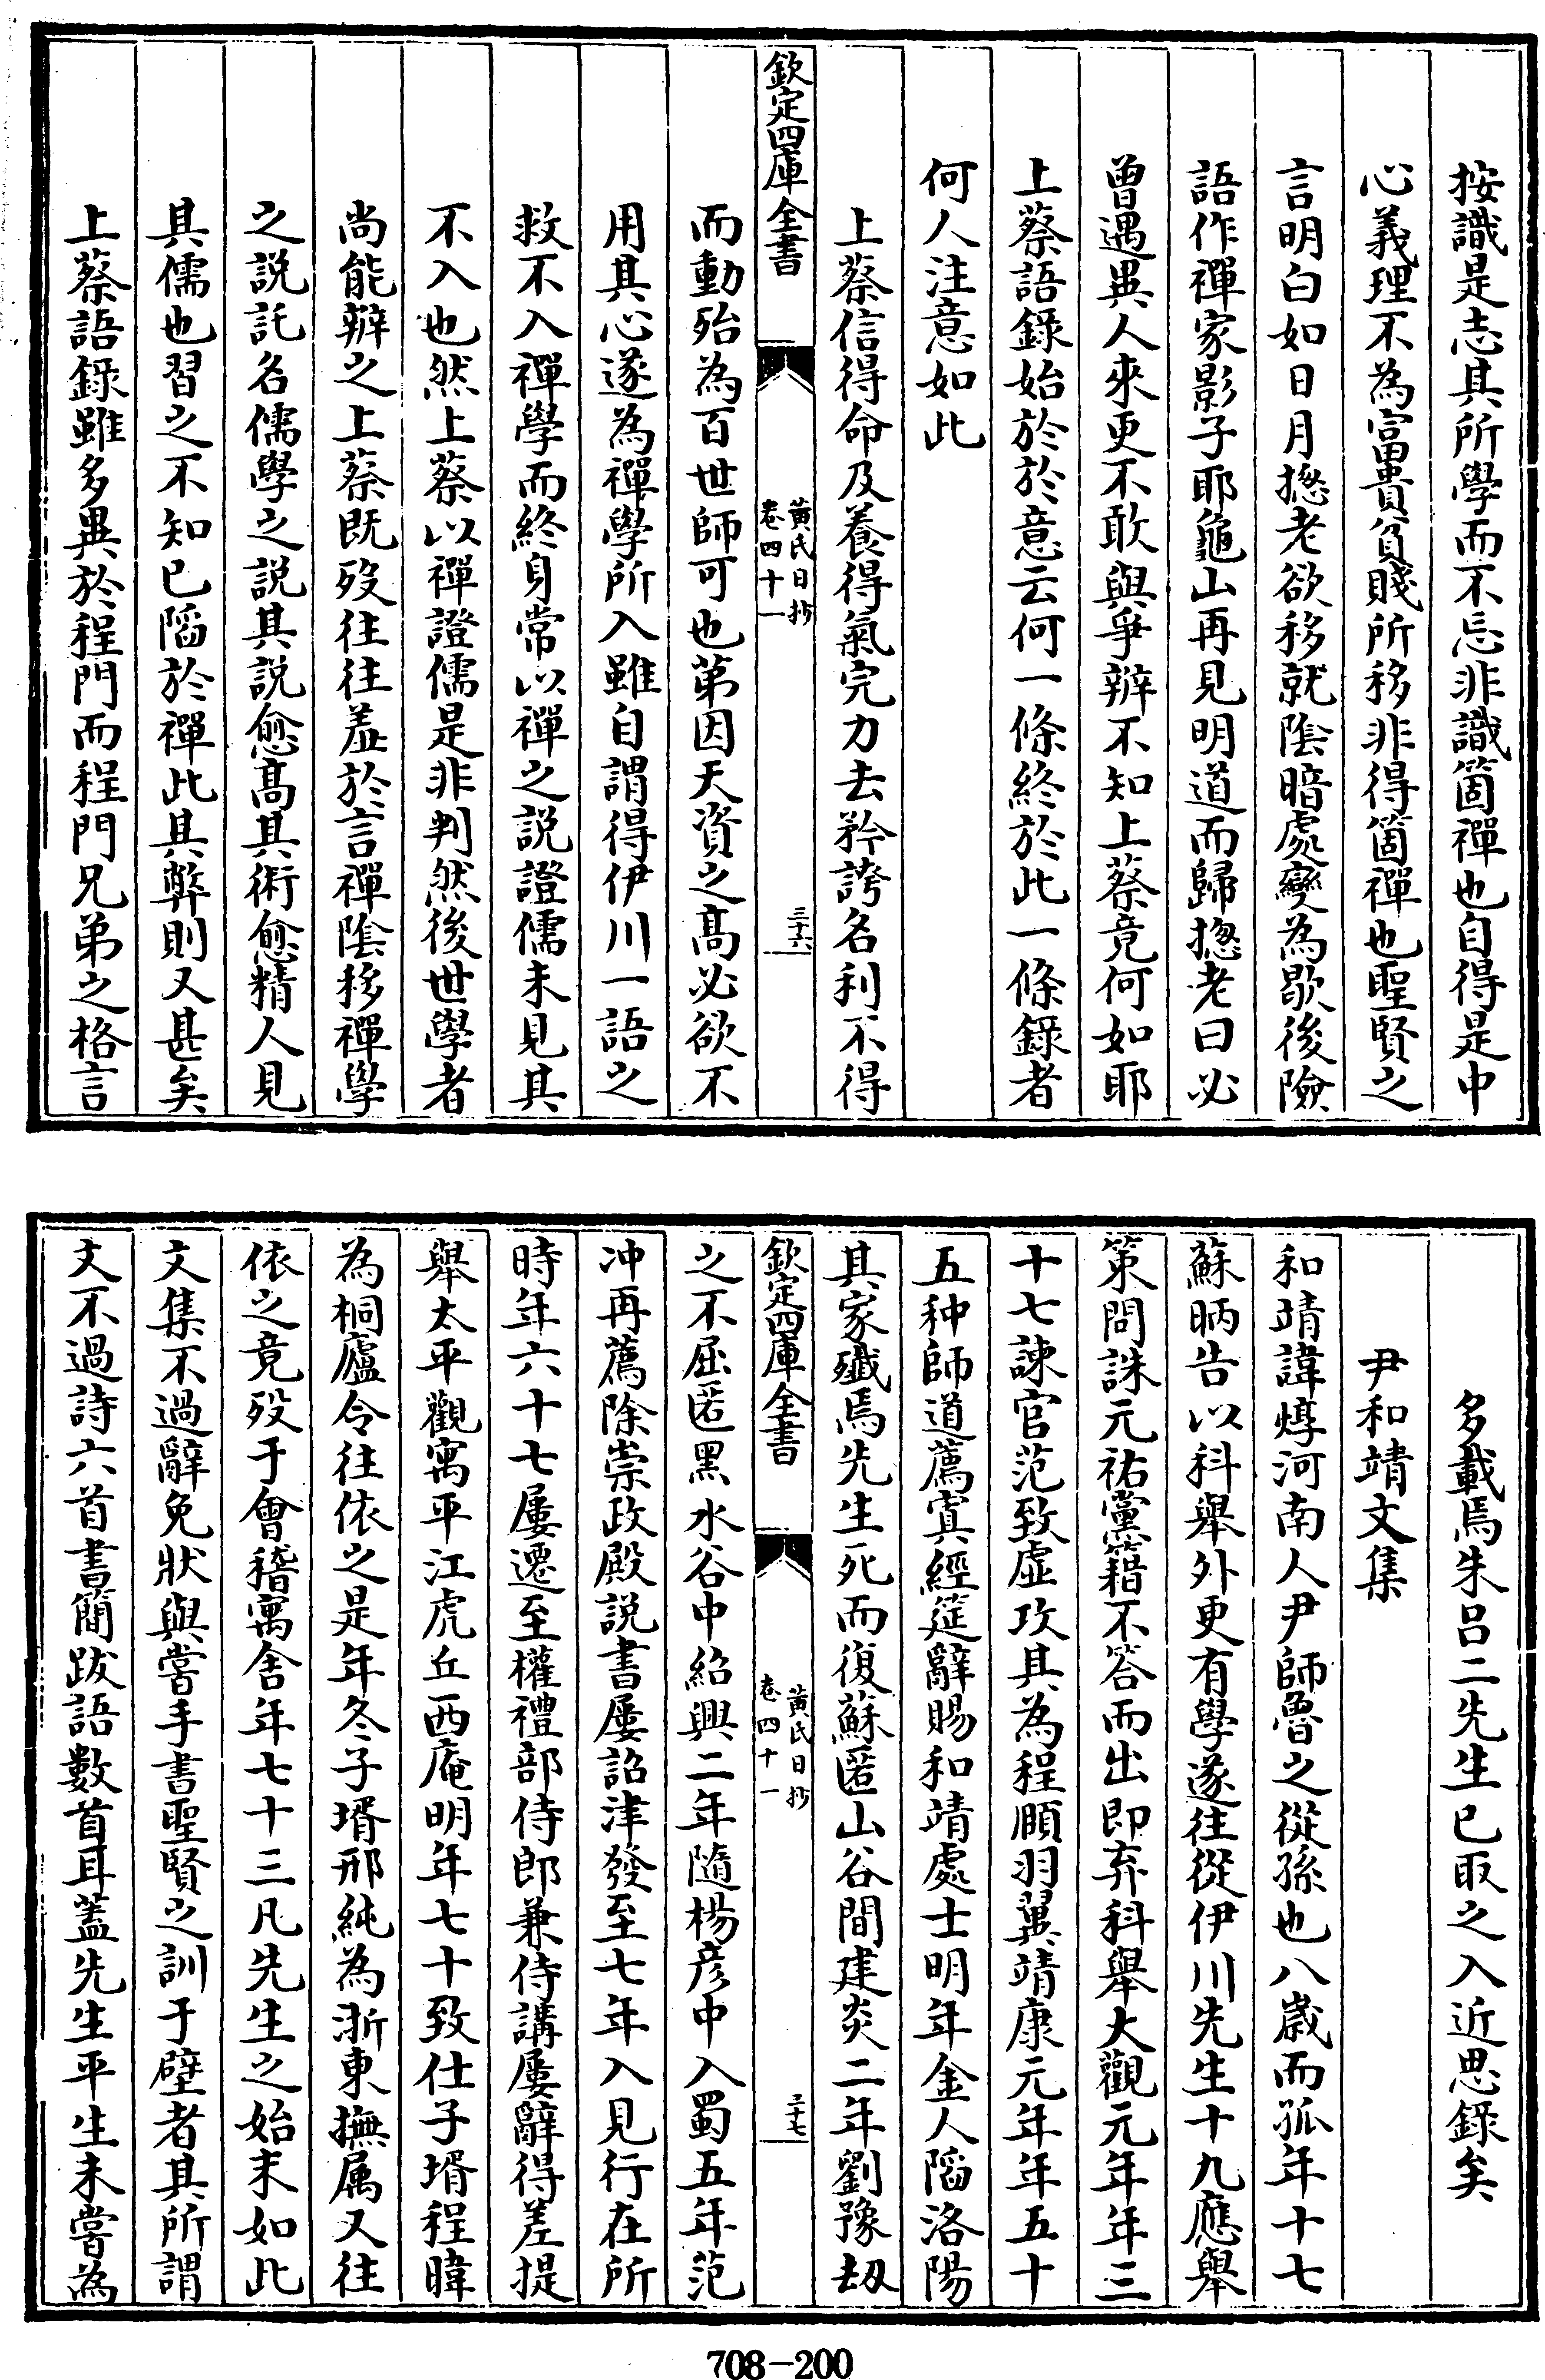 按識是志其所學而不忘非識箇禪也自得是中
心義理不為富貴貧賤所移非得箇禪也聖賢之
言明白如日月揔老欲移就陰暗處變為歇後險
語作禪家影子耶龜山再見明道而歸揔老曰必
曽遇異人來更不敢與爭辯不知上蔡竟何如耶
上蔡語錄始於於意云何一條終於此一條錄者
何人注意如此
上蔡信得命及養得氣完力去矜誇名利不得
欽定四庫全書
黃氏日抄
卷四十一
三十六
而動殆為百世師可也第因天資之髙必欲不
用其心遂為禪學所入雖自謂得伊川一語之
救不入禪學而終身常以禪之說證儒未見其
不入也然上蔡以禪證儒是非判然後世學者
尚能辯之上蔡既歿往往羞於言禪陰移禪學
之說託名儒學之說其說愈髙其術愈精人見
其儒也習之不知已陷於禪此其弊則又甚矣
上蔡語錄雖多異於程門而程門兄弟之格言
多載焉朱吕二先生已取之入近思錄矣
尹和靖文集
和靖諱焞河南人尹師魯之從孫也八歲而孤年十七
蘇昞告以科舉外更有學遂往從伊川先生十九應舉
策問誅元祐黨籍不答而出即弃科舉大觀元年年三
十七諫官范致虚攻其為程頤羽翼靖康元年年五十
五种師道薦寘經筵辭賜和靖處士明年金人陷洛陽
其家殲焉先生死而復蘇匿山谷間建炎二年劉豫劫
欽定四庫全書
黃氏日抄
卷四十一
三十七
之不屈匿黑水谷中紹興二年隨楊彦中入蜀五年范
冲再薦除崇政殿說書屢詔津發至七年入見行在所
時年六十七屢遷至權禮部侍郎兼侍講屢辭得差提
舉太平觀寓平江虎丘西庵明年七十致仕子壻程暐
為桐廬令往依之是年冬子壻邢純為浙東撫属又往
依之竟歿于會稽寓舍年七十三凡先生之始末如此
文集不過辭免狀與嘗手書聖賢之訓于壁者其所謂
文不過詩六首書簡跋語數首耳蓋先生平生未嘗為
708-200